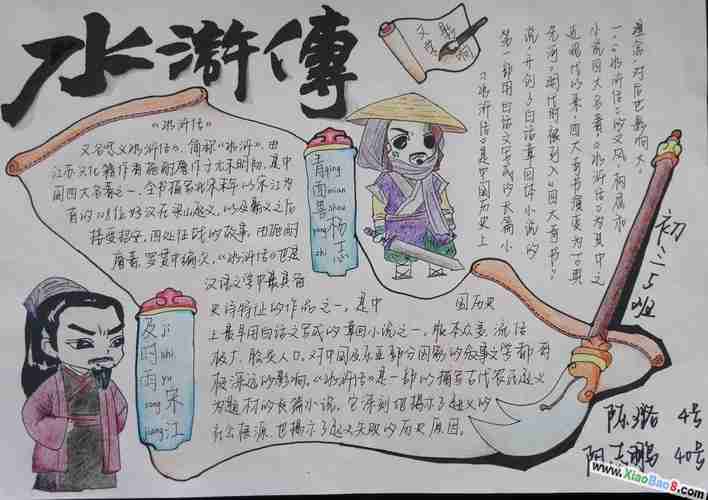 水滸傳
文学影响
《水浒传》
又名忠义水浒传,简称《水浒》,由
江苏文化籍作者施耐庵作于元末明初,是中
国四大名著之一,全书描写北宋末年以宋江为
首的108位好汉在梁山起义,以及聚义之后
接受招安,四处征战的故事,由施耐
庵著,罗贯中编次,《水浒传》也是
汉语文学中最具备
史诗特征的作品之一,是中国历史
上最早用白话文写成的章回小说之一,版本众多,流传
极广,脍炙人口,对中国及东亚部分国家的叙事文学都有
极深远的影响,《水浒传》是一部的描写古代农民起义
为题材的长篇小说,它深刻
揭示了起义的
社会根源,也揭示了起义失败的历史原因。
《水浒传》是中国历史上
第一部用白话文写成的长篇小
说,开创了白话章回体小说的
先河,明代时被列入"四大奇书"
近现代
小说四大名著,《水浒传》为其中之
一,《水浒传》的文风
对后世影响大。
青面兽杨志
qing mian shou yang zhi
及时雨宋江
ji shi yu song jiang
初二5班
4号
阿志鹏 40号
www.XiaoBao8.com